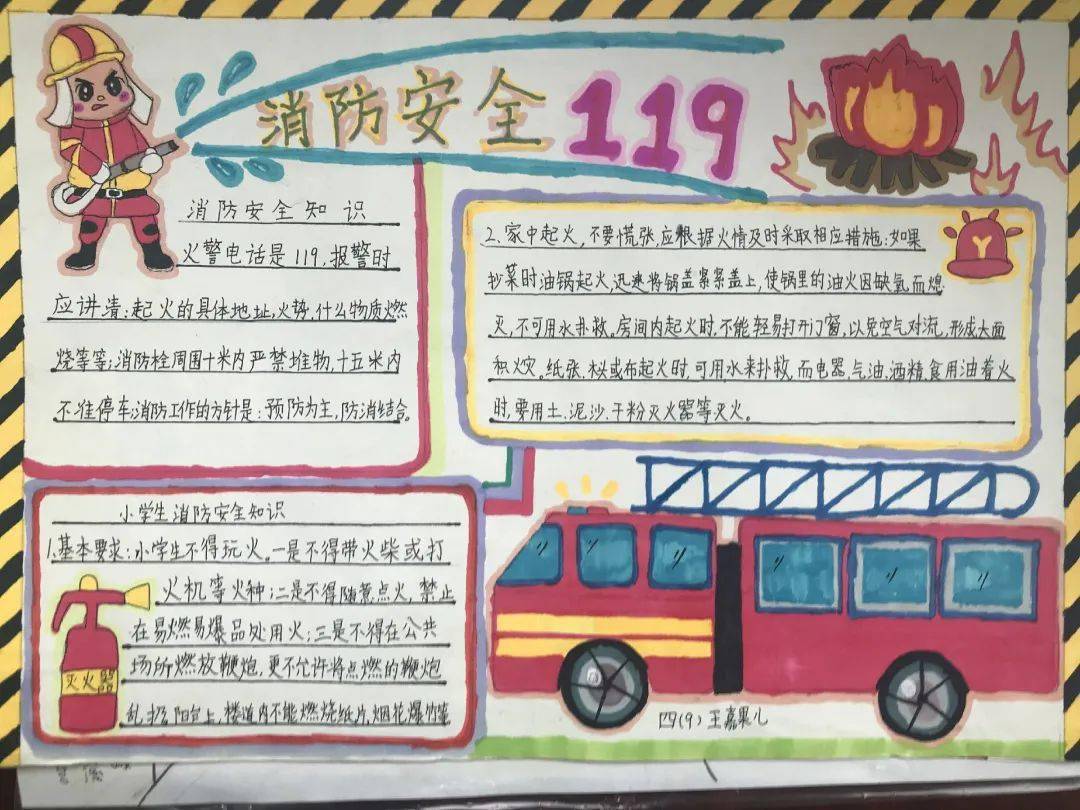 消防安全 119
消防安全知识
火警电话是119,报警时
应讲清:起火的具体地址,火势,什么物质燃
烧等等;消防栓周围十米内严禁堆物,十五米内
不准停车;消防工作的方针是:预防为主,防消结合。
2.家中起火,不要慌张,应根据火情及时采取相应措施:如果
抄菜时油锅起火,迅速将锅盖紧紧盖上,使锅里的油火因缺氧而熄
灭,不可用水扑救。房间内起火时,不能轻易打开门窗,以免空气对流,形成大面
积火灾。纸张、木头或布起火时,可用水来扑救,而电器、气油、酒精、食用油着火
时,要用土、泥沙、干粉灭火器等灭火。
小学生消防安全知识
1.基本要求:小学生不得玩火。一是不得带火柴或打
火机等火种;二是不得随意点火,禁止
在易燃易爆品处用火;三是不得在公共
场所燃放鞭炮,更不允许将点燃的鞭炮
乱扔阳台上,楼道内不能燃烧纸片,烟花爆竹等
灭火器
四(9)王嘉果儿